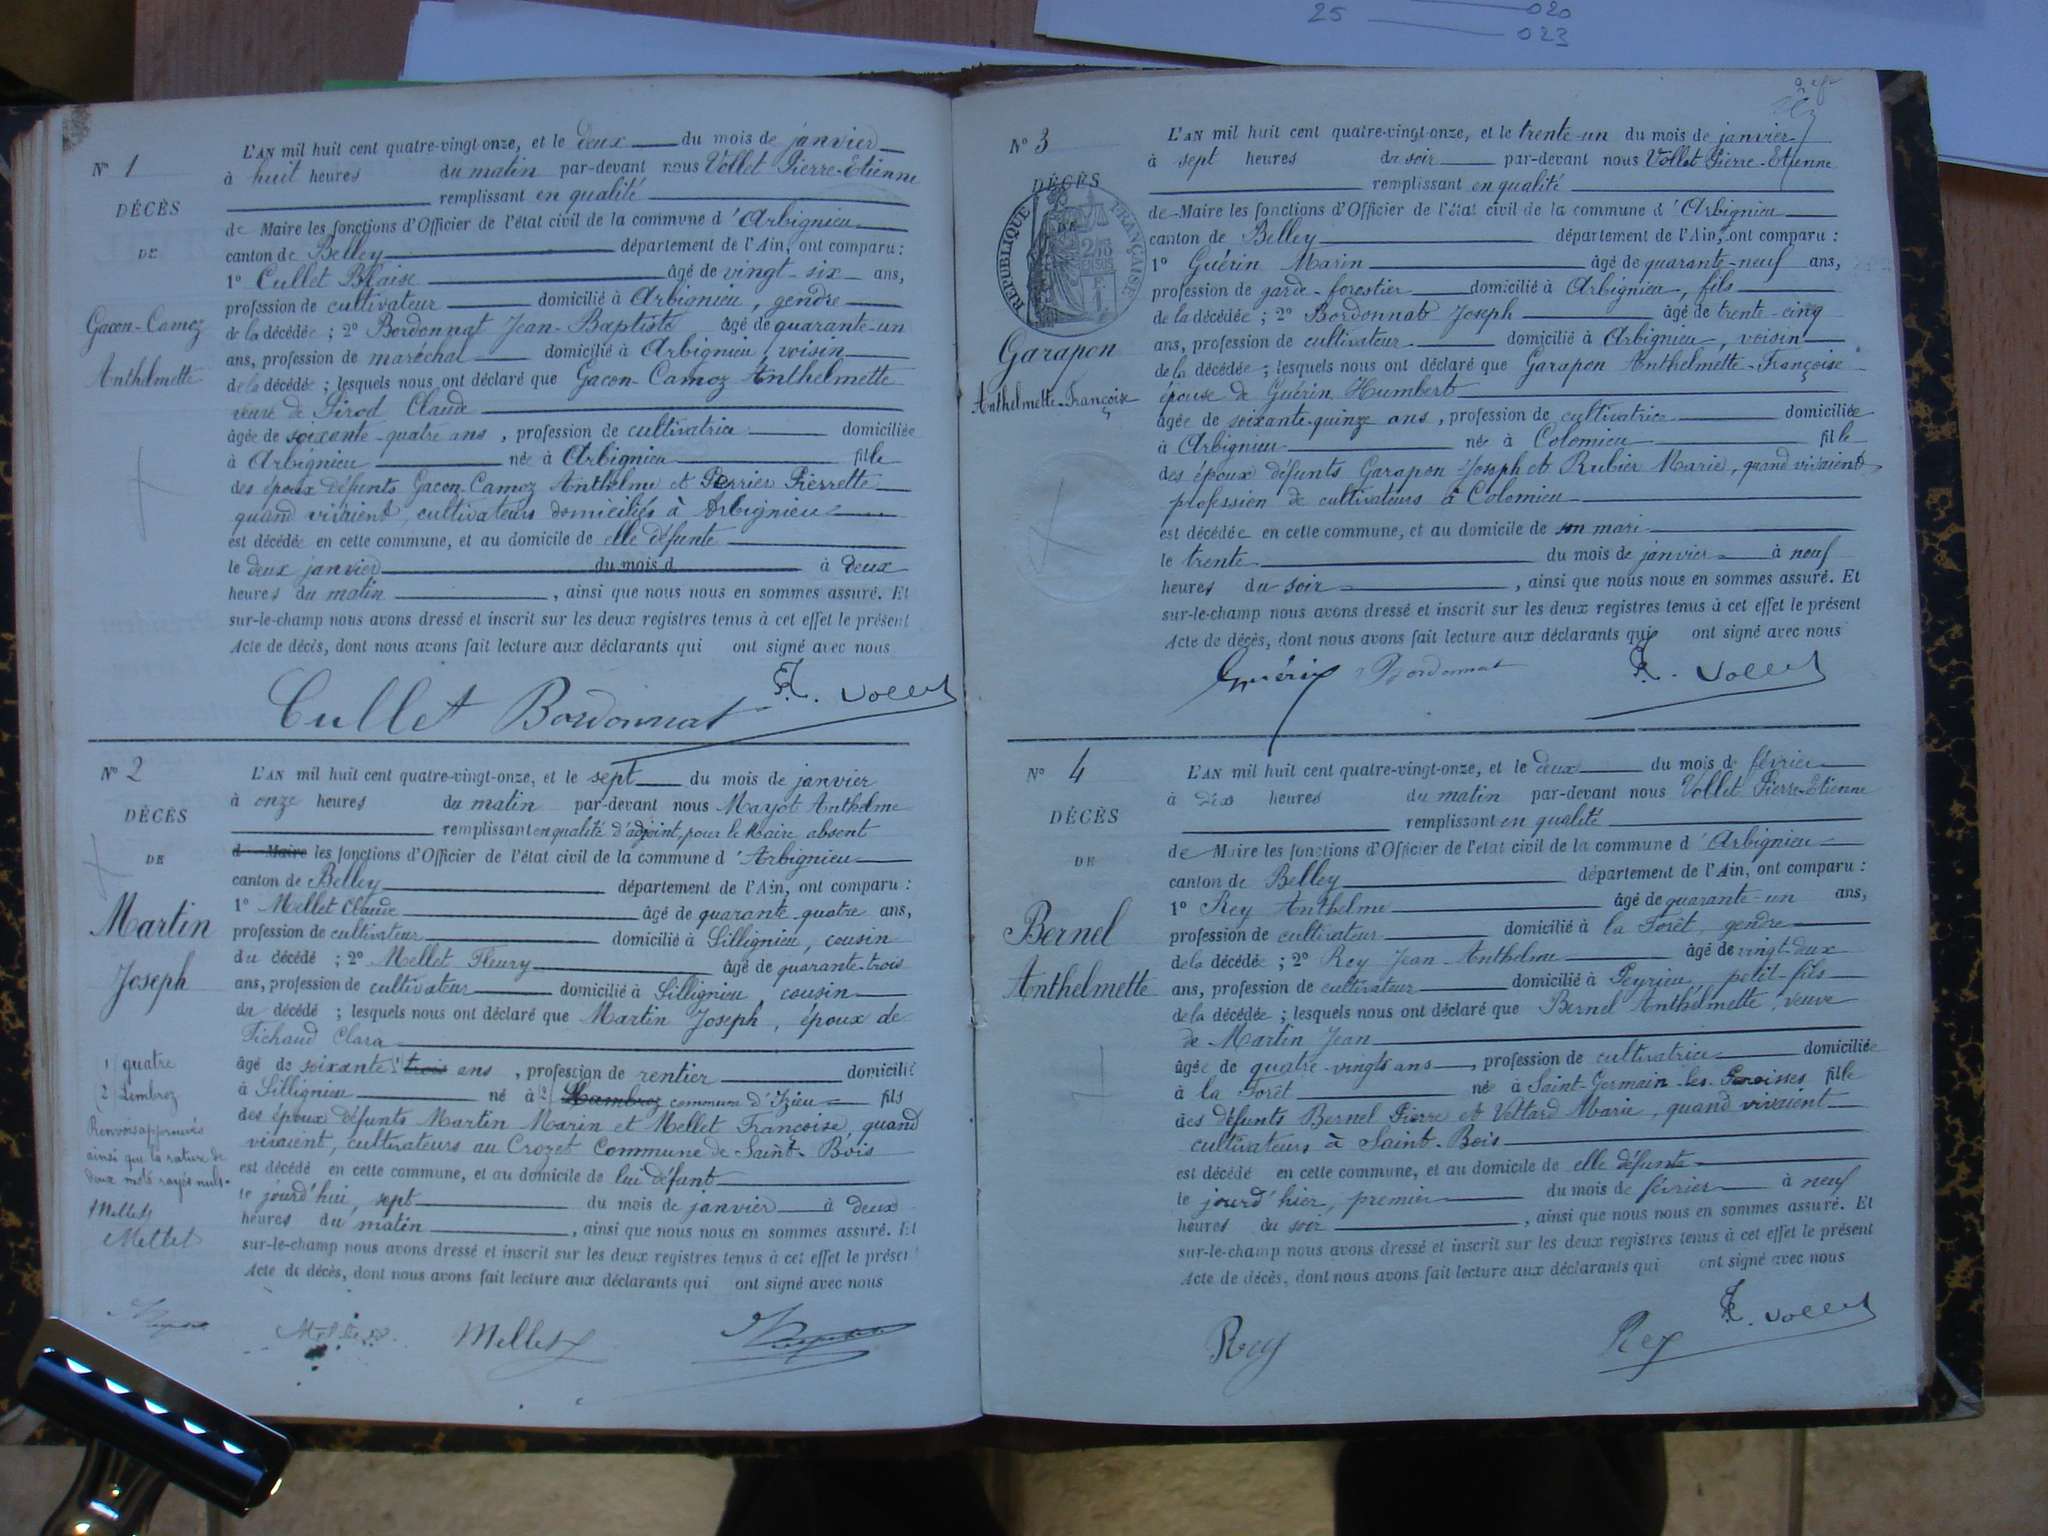 25 020
023
N° 1
DÉCÈS
DE
Gacon-Camoz
Anthelmette
L'AN mil huit cent quatre-vingt-onze, et le deux du mois de janvier
à huit heures du matin par-devant nous Vollet Pierre-Etienne
remplissant en qualité
de Maire les fonctions d'Officier de l'état civil de la commune d'Arbignieu
canton de Belley département de l'Ain, ont comparu :
1° Cullet Blaise âgé de vingt-six ans,
profession de cultivateur domicilié à Arbignieu, gendre
de la décédée ; 2° Bordonnat Jean-Baptiste âgé de quarante-un
ans, profession de maréchal domicilié à Arbignieu, voisin
de la décédée ; lesquels nous ont déclaré que Gacon-Camoz Anthelmette
veuve de Sirod Claude
âgée de soixante-quatre ans, profession de cultivatrice domiciliée
à Arbignieu née à Arbignieu fille
des époux défunts Gacon-Camoz Anthelme et Perrier Pierrette
quand vivaient, cultivateurs domiciliés à Arbignieu
est décédée en cette commune, et au domicile de elle défunte
le deux janvier du mois d à deux
heures du matin, ainsi que nous nous en sommes assuré. Et
sur-le-champ nous avons dressé et inscrit sur les deux registres tenus à cet effet le présent
Acte de décès, dont nous avons fait lecture aux déclarants qui ont signé avec nous
Cullet Bordonnat Vollet
N° 2
DÉCÈS
DE
Martin
Joseph
1 quatre
(2) Lembroz
Renvois approuvés
ainsi que la rature de
deux mots rayés nuls.
Mellet
Mellet
L'AN mil huit cent quatre-vingt-onze, et le sept du mois de janvier
à onze heures du matin par-devant nous Mayot Anthelme
remplissant en qualité d'adjoint, pour le Maire absent
d Maire les fonctions d'Officier de l'état civil de la commune d'Arbignieu
canton de Belley département de l'Ain, ont comparu :
1° Mellet Claude âgé de quarante-quatre ans,
profession de cultivateur domicilié à Sillignieu, cousin
du décédé ; 2° Mellet Fleury âgé de quarante-trois
ans, profession de cultivateur domicilié à Sillignieu, cousin
du décédé ; lesquels nous ont déclaré que Martin Joseph, époux de
Tichaud Clara
âgé de soixante (1 trois ans, profession de rentier domicilié
à Sillignieu né à (2) Lambroz commune d'Izieu fils
des époux défunts Martin Marin et Mellet Françoise, quand
vivaient, cultivateurs au Crozet Commune de Saint-Bois
est décédé en cette commune, et au domicile de lui défunt
le jourd'hui, sept du mois de janvier à deux
heures du matin, ainsi que nous nous en sommes assuré. Et
sur-le-champ nous avons dressé et inscrit sur les deux registres tenus à cet effet le présen
Acte de décès, dont nous avons fait lecture aux déclarants qui ont signé avec nous
Mellet Mellet
N° 3
DÉCÈS
DE
RÉPUBLIQUE FRANÇAISE
Garapon
Anthelmette-Françoise
L'AN mil huit cent quatre-vingt-onze, et le trente-un du mois de janvier
à sept heures du soir par-devant nous Vollet Pierre-Etienne
remplissant en qualité
de Maire les fonctions d'Officier de l'état civil de la commune d'Arbignieu
canton de Belley département de l'Ain, ont comparu :
1° Guérin Marin âgé de quarante-neuf ans,
profession de garde-forestier domicilié à Arbignieu, fils
de la décédée ; 2° Bordonnat Joseph âgé de trente-cinq
ans, profession de cultivateur domicilié à Arbignieu, voisin
de la décédée ; lesquels nous ont déclaré que Garapon Anthelmette-Françoise
épouse de Guérin Humbert
âgée de soixante-quinze ans, profession de cultivatrice domiciliée
à Arbignieu née à Colomieu fille
des époux défunts Garapon Joseph et Rubier Marie, quand vivaient
profession de cultivateurs à Colomieu
est décédée en cette commune, et au domicile de son mari
le trente du mois de janvier à neuf
heures du soir, ainsi que nous nous en sommes assuré. Et
sur-le-champ nous avons dressé et inscrit sur les deux registres tenus à cet effet le présent
Acte de décès, dont nous avons fait lecture aux déclarants qui ont signé avec nous
Guérin Bordonnat Vollet
N° 4
DÉCÈS
DE
Bernel
Anthelmette
L'AN mil huit cent quatre-vingt-onze, et le deux du mois de février
à dix heures du matin par-devant nous Vollet Pierre-Etienne
remplissant en qualité
de Maire les fonctions d'Officier de l'état civil de la commune d'Arbignieu
canton de Belley département de l'Ain, ont comparu :
1° Rey Anthelme âgé de quarante-un ans,
profession de cultivateur domicilié à la Forêt, gendre
de la décédée ; 2° Rey Jean-Anthelme âgé de vingt-deux
ans, profession de cultivateur domicilié à Peyrieu, petit-fils
de la décédée ; lesquels nous ont déclaré que Bernel Anthelmette, veuve
de Martin Jean
âgée de quatre-vingts ans, profession de cultivatrice domiciliée
à la Forêt née à Saint-Germain-les-Paroisses fille
des défunts Bernel Pierre et Vettard Marie, quand vivaient
cultivateurs à Saint-Bois
est décédé en cette commune, et au domicile de elle défunte
le jourd'hier, premier du mois de février à neuf
heures du soir, ainsi que nous nous en sommes assuré. Et
sur-le-champ nous avons dressé et inscrit sur les deux registres tenus à cet effet le présent
Acte de décès, dont nous avons fait lecture aux déclarants qui ont signé avec nous
Rey Rey Vollet